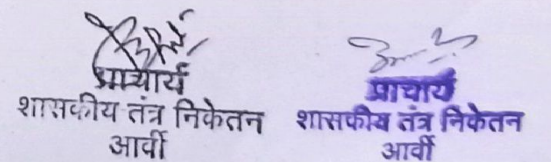 प्राचार्य
शासकीय तंत्र निकेतन
आर्वी
प्राचार्य
शासकीय तंत्र निकेतन
आर्वी